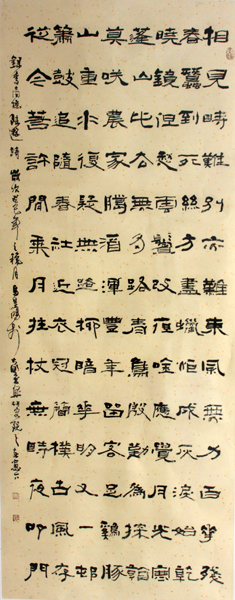 相見時難別亦難東風無力百華殘
春蠶到死絲方盡蠟炬成灰淚始乾
曉鏡但愁雲鬢改夜吟應覺月光寒
蓬山此去無多路青鳥殷勤為探看
莫咲農家臘酒渾豐年留客足雞豚
山重水復疑無路柳暗華明又一邨
簫鼓追隨春社近衣冠簡樸古風存
從今若許閒乘月拄杖無時夜叩門
錄李商隱陸游詩歲次